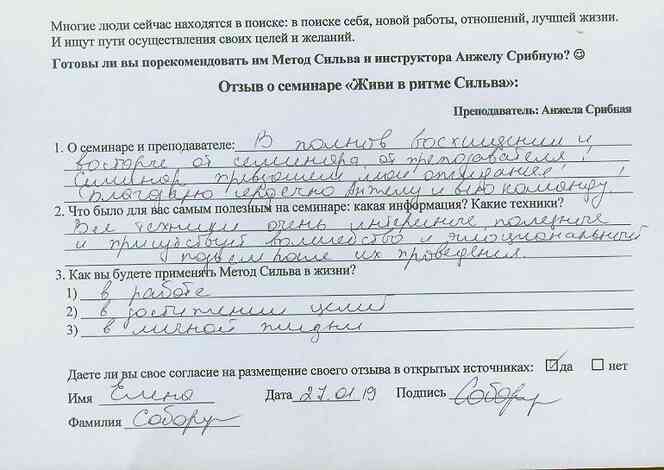 Многие люди сейчас находятся в поиске: в поиске себя, новой работы, отношений, лучшей жизни.
И ищут пути осуществления своих целей и желаний.
Готовы ли вы порекомендовать им Метод Сильва и инструктора Анжелу Срибную? ☺
Отзыв о семинаре «Живи в ритме Сильва»:
Преподаватель: Анжела Срибная
1. О семинаре и преподавателе: В полном восхищении и
восторге от семинара, от преподавателя!
Семинар превысил мои ожидания!
Благодарю сердечно Анжелу и всю команду!
2. Что было для вас самым полезным на семинаре: какая информация? Какие техники?
Все техники очень интересные, полезные
и присутствует волшебство и эмоциональный
подъем после их проведения.
3. Как вы будете применять Метод Сильва в жизни?
1) в работе
2) в достижении целей
3) в личной жизни
Даете ли вы свое согласие на размещение своего отзыва в открытых источниках: ☑да ☐ нет
Имя Елена Дата 27.01.19 Подпись
Фамилия